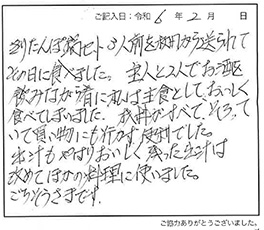 ご記入日：令和 6 年 2 月 日
きりたんぽ鍋セット 3人前を秋田から送られて
その日に食べました。主人と2人でお酒
飲みながら肴に私は主食として おいしく
食べてしまいました。具材がすべてそろって
いて買い物にも行かず便利でした。
出汁もやはりおいしく 残った出汁は
改めてほかの料理に使いました。
ごちそうさまです
ご協力ありがとうございました。